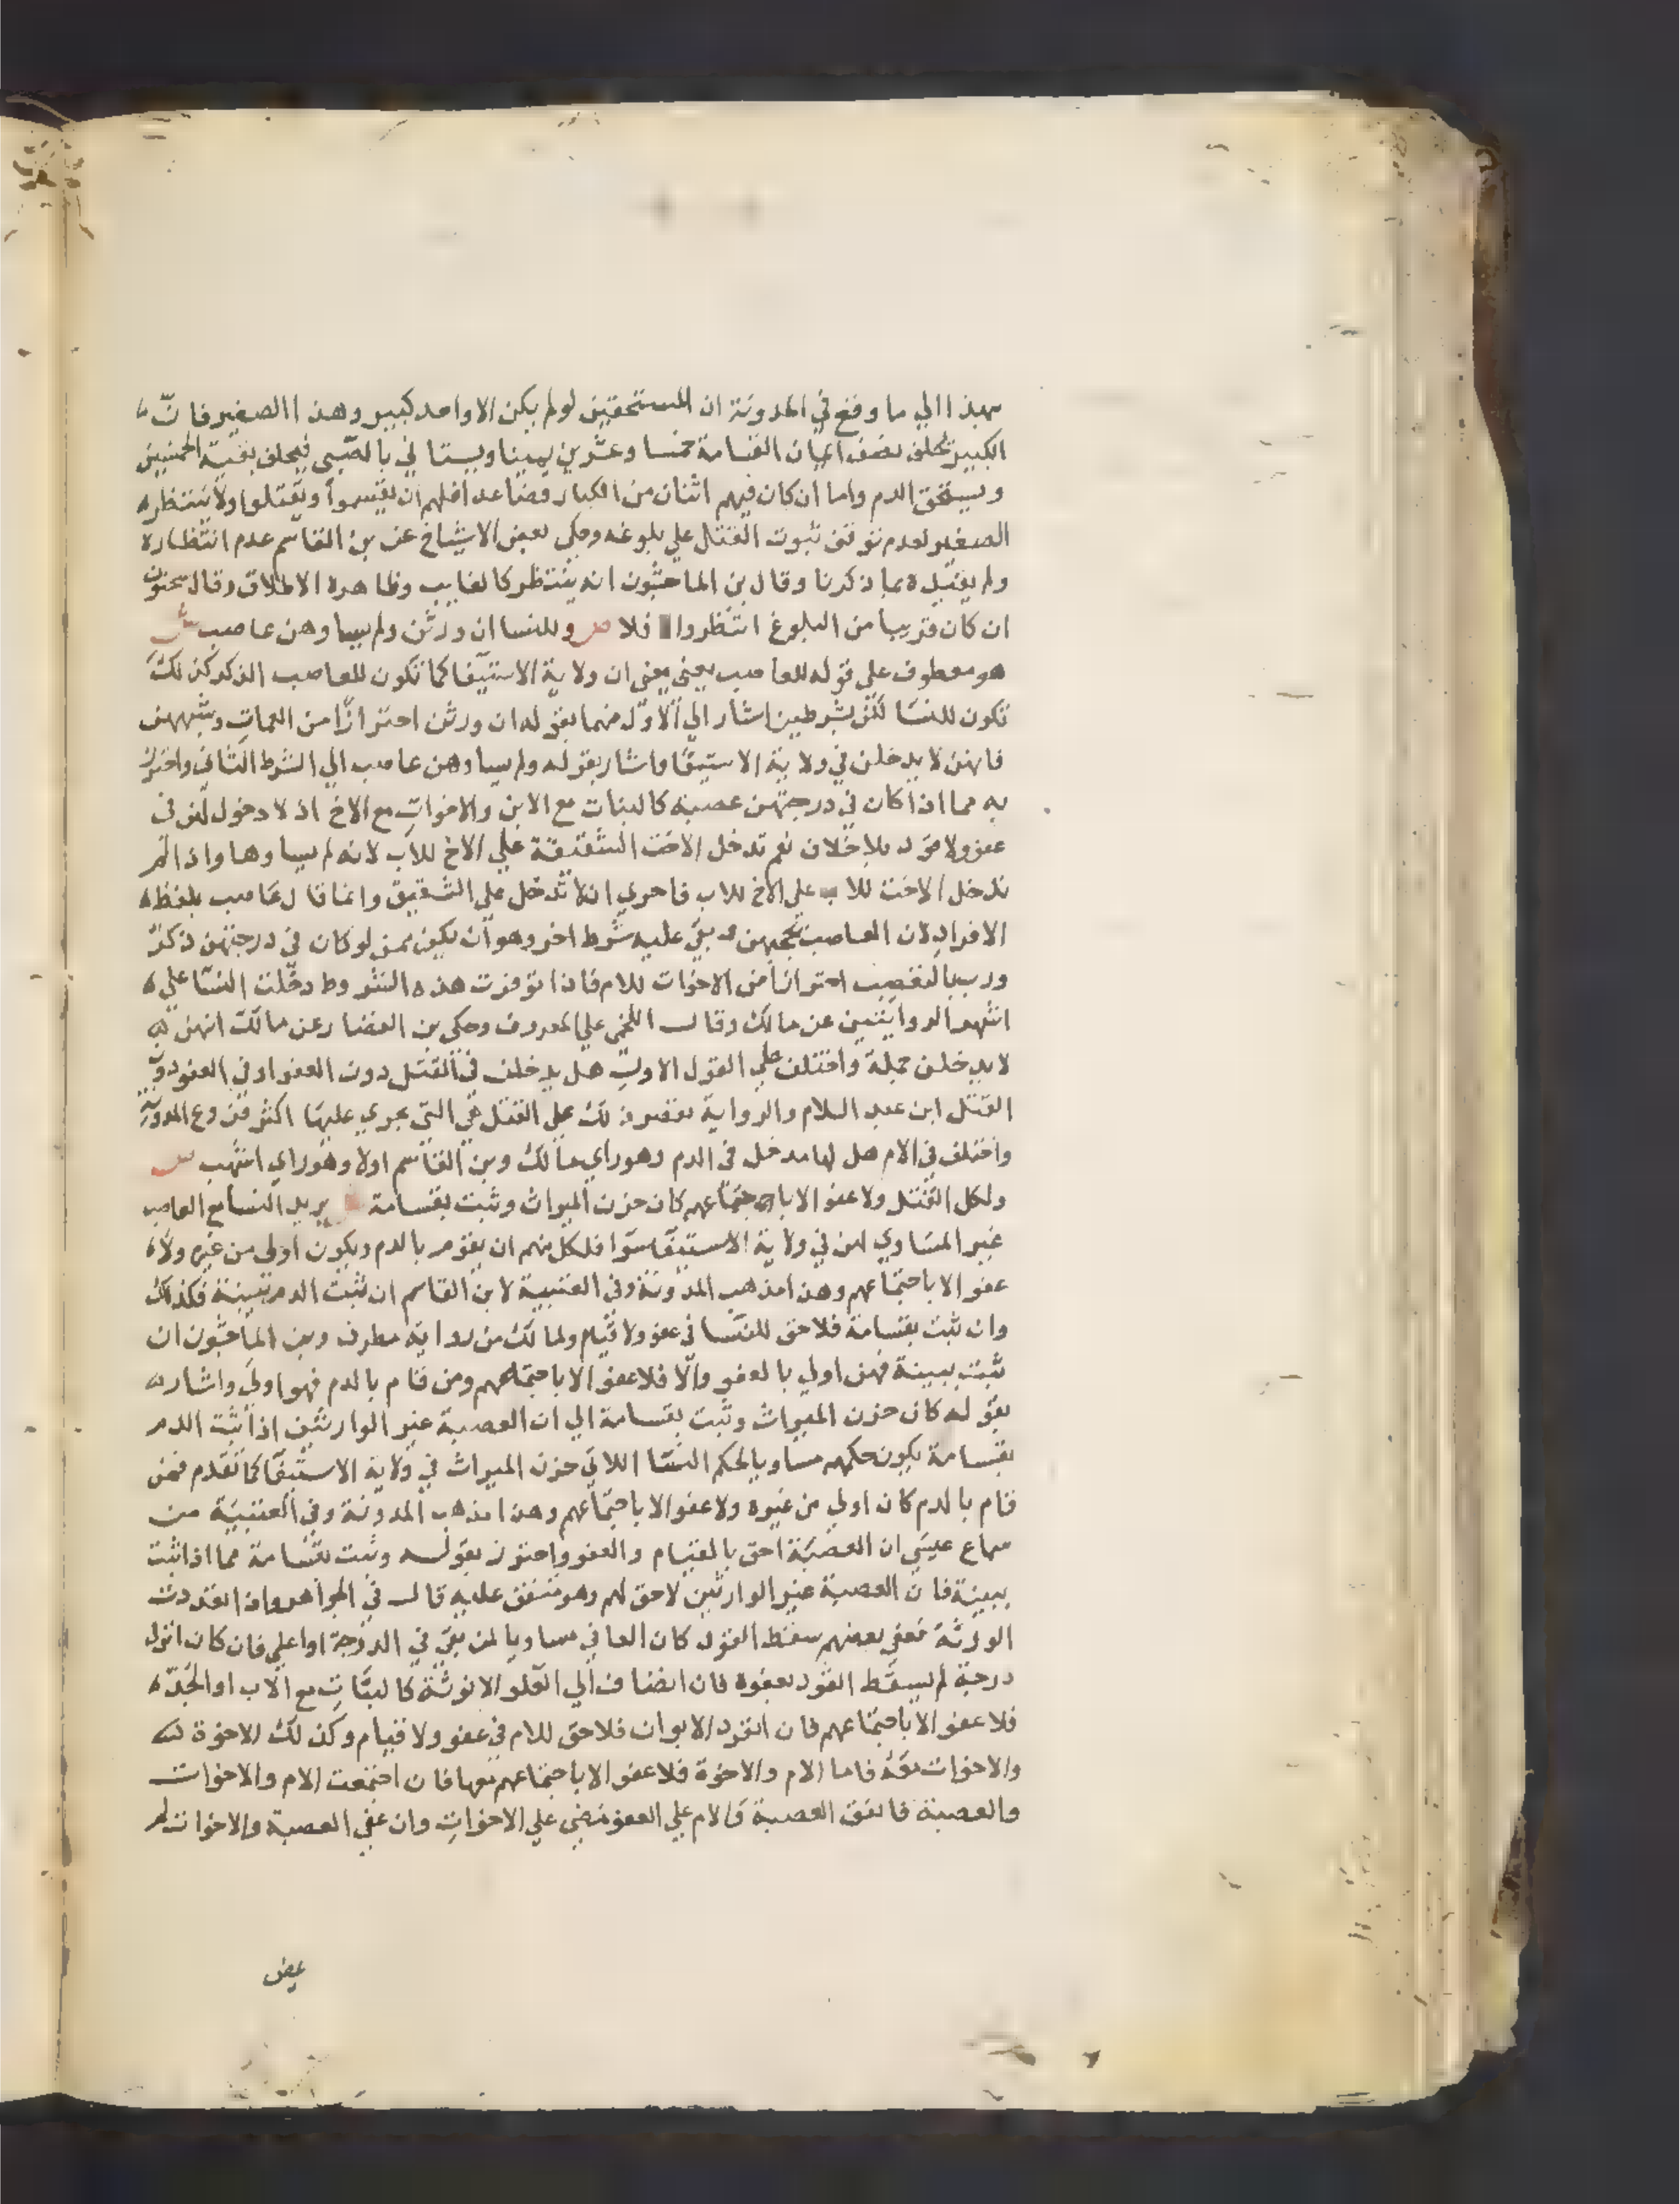 بهذا الي ما وقع في المدونة ان المستحقين لو لم يكن الا واحد كبير وهذا الصغير فان
الكبير يحلف نصف ايمان القسامة خمسا وعشرين يمينا ويستاني بالصبي فيحلف بقية الخمسين
ويستحق الدم واما ان كان فيهم اثنان من الكبار فصاعدا فلهم ان يقسموا ويقتلوا ولا ينتظر
الصغير لعدم توقف ثبوت القتل علي بلوغه وحكي بعض الاشياخ عن بن القاسم عدم انتظاره
ولم يقيده بما ذكرنا وقال بن الماجشون انه ينتظر كالغايب وظاهره الاطلاق وقال سحنون
ان كان قريبا من البلوغ انتظر والا فلا ص وللنسا ان ورثن ولم يساوهن عاصب ش
هو معطوف علي قوله للعاصب يعني يعني ان ولاية الاستيفا كما تكون للعاصب الذكر كذلك
تكون للنسا لكن بشرطين اشار الي الاول منهما بقوله ان ورثن احترازا من العمات وشبههن
فانهن لا يدخلن في ولاية الاستيفا واشار بقوله ولم يساوهن عاصب الي الشرط الثاني واحترز
به مما اذا كان في درجتهن عصبة كالبنات مع الابن والاخوات مع الاخ اذ لا دخول لهن في
عفو ولا قود بلا خلاف نعم تدخل الاخت الشقيقة علي الاخ للاب لانه لم يساوها واذا لم
تدخل الاخت للاب علي الاخ للاب فاحري ان لا تدخل علي الشقيق وانما قال عاصب بلفظ
الافراد لان العاصب يحجبهن وبقي عليه شرط اخر وهو ان يكن ممن لو كان في درجتهن ذكر
ورث بالتعصيب احترازا من الاخوات للام فاذا توفرت هذه الشروط دخلت النسا علي
اشهر الروايتين عن مالك وقال اللخمي علي المعروف وحكي بن القصار عن مالك انهن
لا يدخلن جملة واختلف علي القول الاول هل يدخلن في القتل دون العفو او في العفو دون
القتل ابن عبد السلام والرواية بقصر ذلك علي القتل هي التي يجري عليها اكثر فروع المدونة
واختلف في الام هل لها مدخل في الدم وهو راي مالك وبن القاسم اولا وهو راي اشهب ص
ولكل القتل ولا عفو الا باجتماعهم كان حزن الميراث وثبت بقسامة ش يريد النسا مع العاصب
غير المساوي لهن في ولاية الاستيفا سوا فلكل منهم ان يقوم بالدم ويكون اولي من غيره ولا
عفو الا باجتماعهم وهذا مذهب المدونة وفي العتبية لابن القاسم ان ثبت الدم ببينة فكذلك
وان ثبت بقسامة فلا حق للنسا في عفو ولا قيام ولمالك من رواية مطرف وبن الماجشون ان
ثبت ببينة فهن اولي بالعفو والا فلا عفو الا باجتماعهم ومن قام بالدم فهو اولي واشار
بقوله كان حزن الميراث وثبت بقسامة الي ان العصبة غير الوارثين اذا ثبت الدم
بقسامة يكون حكمهم مساويا لحكم النسا اللاتي حزن الميراث في ولاية الاستيفا كما تقدم فمن
قام بالدم كان اولي من غيره ولا عفو الا باجتماعهم وهذا مذهب المدونة وفي العتبية من
سماع عيسي ان العصبة احق بالقيام والعفو واحترز بقوله وثبت بقسامة مما اذا ثبت
ببينة فان العصبة غير الوارثين لا حق لهم وهو متفق عليه قال في الجواهر واذا تعددت
الورثة فعفي بعضهم سقط القود كان العافي مساويا لمن بقي في الدرجة او اعلي فان كان انزل
درجة لم يسقط القود بعفوه فان انضاف الي العلو الانوثة كالبنات مع الاب او الجد
فلا عفو الا باجتماعهم فان انفرد الابوان فلا حق للام في عفو ولا قيام وكذلك الاخوة
والاخوات معه فاما الام والاخوة فلا عفو الا باجتماعهم معها فان اجتمعت الام والاخوات
والعصبة فاتفق العصبة والام علي العفو مضي علي الاخوات وان عفي العصبة والاخوات لم
يمض